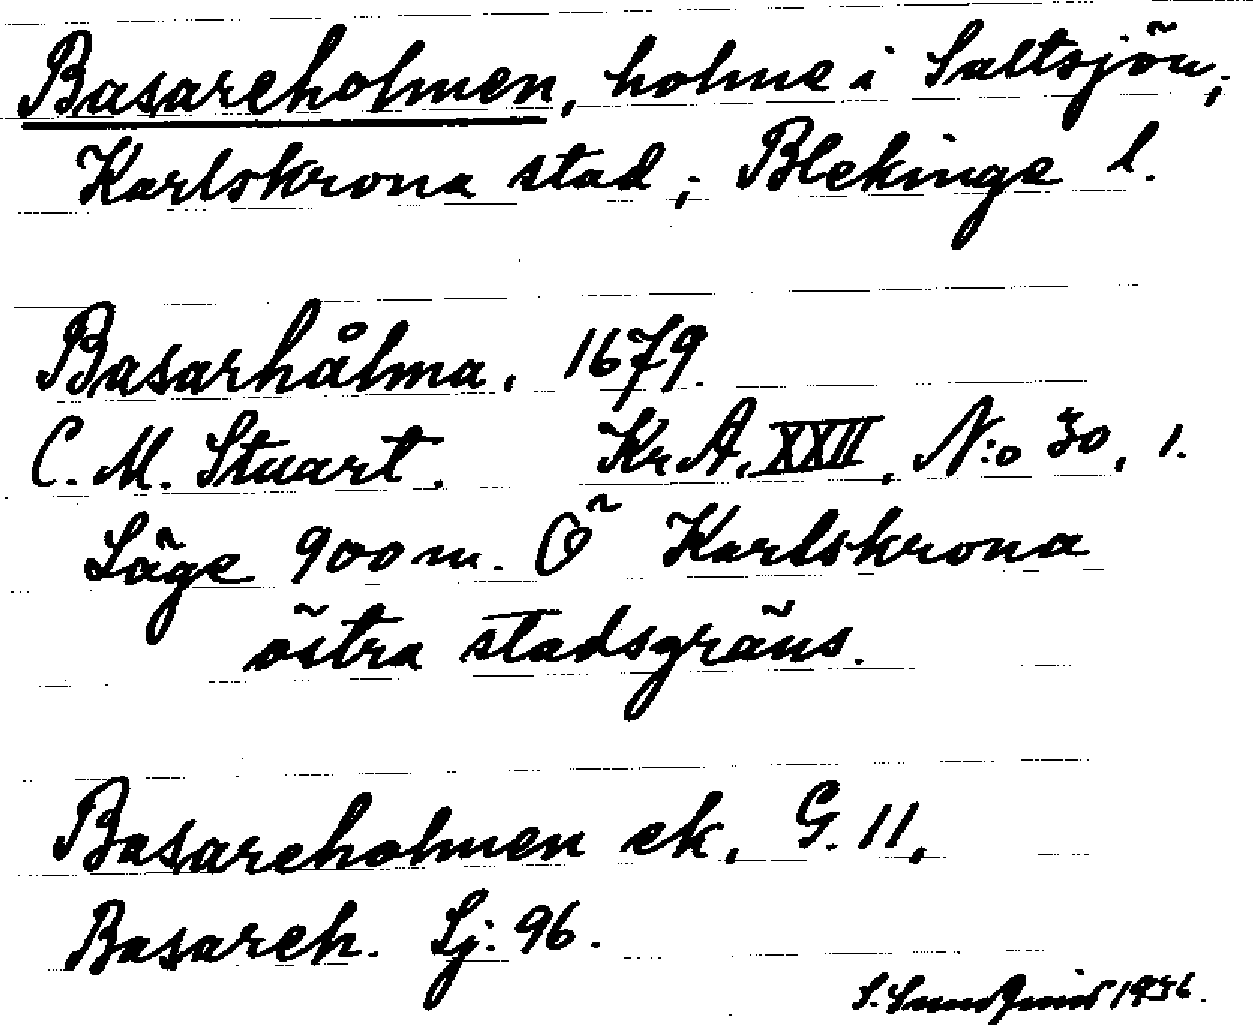 Basareholmen, holme i Saltsjön,
Karlskrona stad, Blekinge l.
Basarhålma. 1679.
C. M. Stuart. Kr. A. XXII, N:o 30, 1.
Läge 900 m. Ö Karlskrona
östra stadsgräns.
Basareholmen ek. G. 11,
Basareh. Sj. 96.
S. 1936.